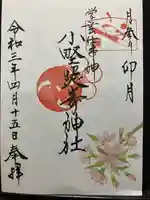 月参り 卯月
学芸の神
小野照崎神社
令和三年四月十五日奉拝